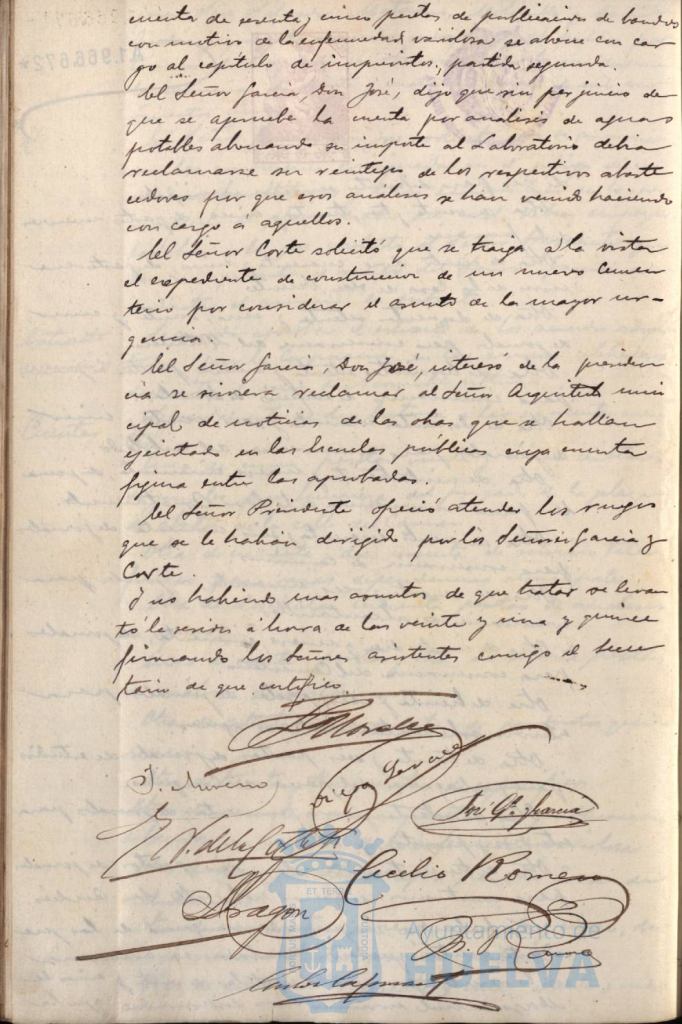 cuenta de sesenta y cinco pesetas de publicación de bandos
con motivo de la enfermedad variolosa se abone con car
go al capítulo de imprevistos, partida segunda.
El Señor García, Don José, dijo que sin perjuicio de
que se apruebe la cuenta por análisis de aguas
potables abonando su importe al Laboratorio debía
reclamarse su reintegro de los respectivos abaste
cedores por que esos análisis se han venido haciendo
con cargo á aquellos.
El Señor Corte solicitó que se traiga á la vista
el expediente de construcción de un nuevo Cemen
terio por considerar el asunto de la mayor ur-
gencia.
El Señor García, Don José, interesó de la presiden
cia se sirviera reclamar al Señor Arquitecto muni
cipal de noticias de las obras que se hallan
ejecutado en las Escuelas públicas cuya cuenta
figura entre las aprobadas.
El Señor Presidente ofreció atender los ruegos
que se le habían dirigido por los Señores García y
Corte.
Y no habiendo mas asuntos de que tratar se levan
tó la sesión á hora de las veinte y una y quince
firmando los Señores asistentes conmigo el Secre
tario de que certifico.
J. Moreno
José Gª García
V. de la Corte
Cecilio Romero
Aragón
ET TERRAE
Ayuntamiento de
HUELVA
A1.966.672